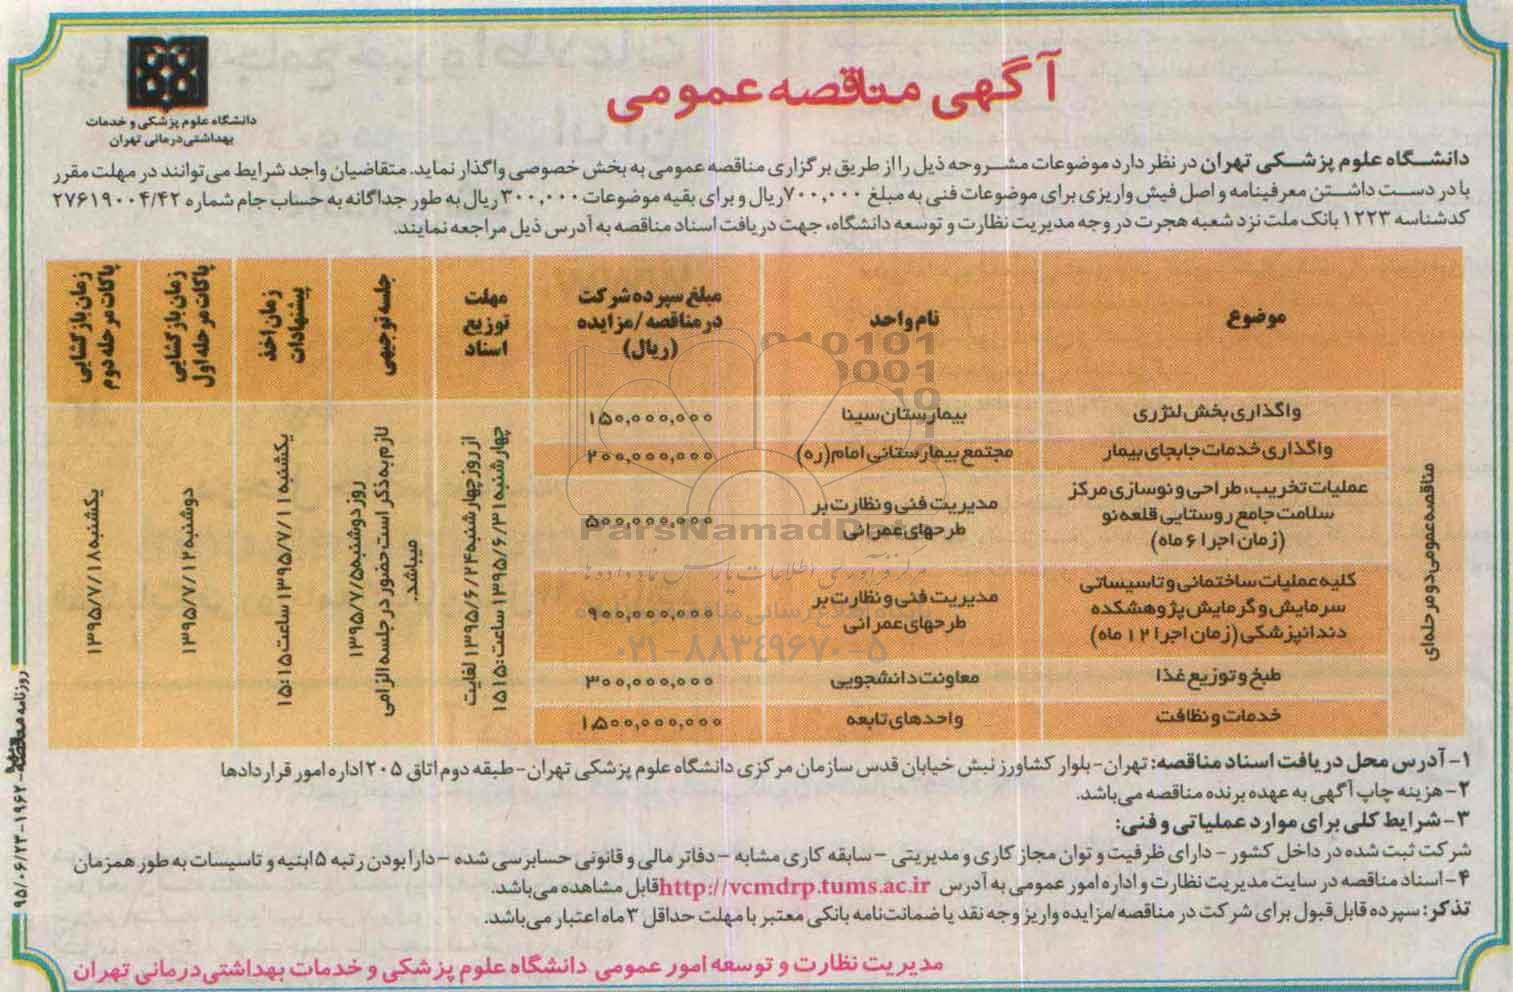 دانشگاه علوم پزشکی و خدمات
بهداشتی درمانی تهران
آگهی مناقصه عمومی
دانشگاه علوم پزشکی تهران در نظر دارد موضوعات مشروحه ذیل را از طریق برگزاری مناقصه عمومی به بخش خصوصی واگذار نماید. متقاضیان واجد شرایط می‌توانند در مهلت مقرر
با در دست داشتن معرفینامه و اصل فیش واریزی برای موضوعات فنی به مبلغ ۷۰۰,۰۰۰ ریال و برای بقیه موضوعات ۳۰۰,۰۰۰ ریال به طور جداگانه به حساب جام شماره ۲۷۶۱۹۰۰۴/۴۲
کدشناسه ۱۲۲۳ بانک ملت نزد شعبه هجرت در وجه مدیریت نظارت و توسعه دانشگاه، جهت دریافت اسناد مناقصه به آدرس ذیل مراجعه نمایند.
موضوع
نام واحد
مبلغ سپرده شرکت
در مناقصه/مزایده
(ریال)
مهلت
توزیع
اسناد
جلسه توجیهی
زمان اخذ
پیشنهادات
زمان بازگشایی
پاکات مرحله اول
زمان بازگشایی
پاکات مرحله دوم
مناقصه عمومی دو مرحله‌ای
واگذاری بخش لنژری
بیمارستان سینا
۱۵۰,۰۰۰,۰۰۰
واگذاری خدمات جابجای بیمار
مجتمع بیمارستانی امام(ره)
۲۰۰,۰۰۰,۰۰۰
عملیات تخریب، طراحی و نوسازی مرکز
سلامت جامع روستایی قلعه نو
(زمان اجرا ۶ ماه)
مدیریت فنی و نظارت بر
طرحهای عمرانی
۵۰۰,۰۰۰,۰۰۰
کلیه عملیات ساختمانی و تاسیساتی
سرمایش و گرمایش پژوهشکده
دندانپزشکی (زمان اجرا ۱۲ ماه)
مدیریت فنی و نظارت بر
طرحهای عمرانی
۹۰۰,۰۰۰,۰۰۰
طبخ و توزیع غذا
معاونت دانشجویی
۳۰۰,۰۰۰,۰۰۰
خدمات و نظافت
واحدهای تابعه
۱,۵۰۰,۰۰۰,۰۰۰
از روز چهارشنبه ۱۳۹۵/۶/۲۴ لغایت
چهارشنبه ۱۳۹۵/۶/۳۱ ساعت: ۱۵:۱۵
روز دوشنبه ۱۳۹۵/۷/۵
لازم به ذکر است حضور در جلسه الزامی
میباشد.
یکشنبه ۱۳۹۵/۷/۱۱ ساعت ۱۵:۱۵
دوشنبه ۱۳۹۵/۷/۱۲
یکشنبه ۱۳۹۵/۷/۱۸
ParsNamadData
۰۲۱-۸۸۳۴۹۶۷۰-۵
۱- آدرس محل دریافت اسناد مناقصه: تهران- بلوار کشاورز نبش خیابان قدس سازمان مرکزی دانشگاه علوم پزشکی تهران- طبقه دوم اتاق ۲۰۵ اداره امور قراردادها
۲- هزینه چاپ آگهی به عهده برنده مناقصه می‌باشد.
۳- شرایط کلی برای موارد عملیاتی و فنی:
شرکت ثبت شده در داخل کشور - دارای ظرفیت و توان مجاز کاری و مدیریتی - سابقه کاری مشابه - دفاتر مالی و قانونی حسابرسی شده - دارا بودن رتبه ۵ ابنیه و تاسیسات به طور همزمان
۴- اسناد مناقصه در سایت مدیریت نظارت و اداره امور عمومی به آدرس http://vcmdrp.tums.ac.ir قابل مشاهده می‌باشد.
تذکر: سپرده قابل قبول برای شرکت در مناقصه/مزایده واریز وجه نقد یا ضمانت‌نامه بانکی معتبر با مهلت حداقل ۳ ماه اعتبار می‌باشد.
مدیریت نظارت و توسعه امور عمومی دانشگاه علوم پزشکی و خدمات بهداشتی درمانی تهران
روزنامه مناقصه - ۱۹۶۲ - ۹۵/۰۶/۲۳